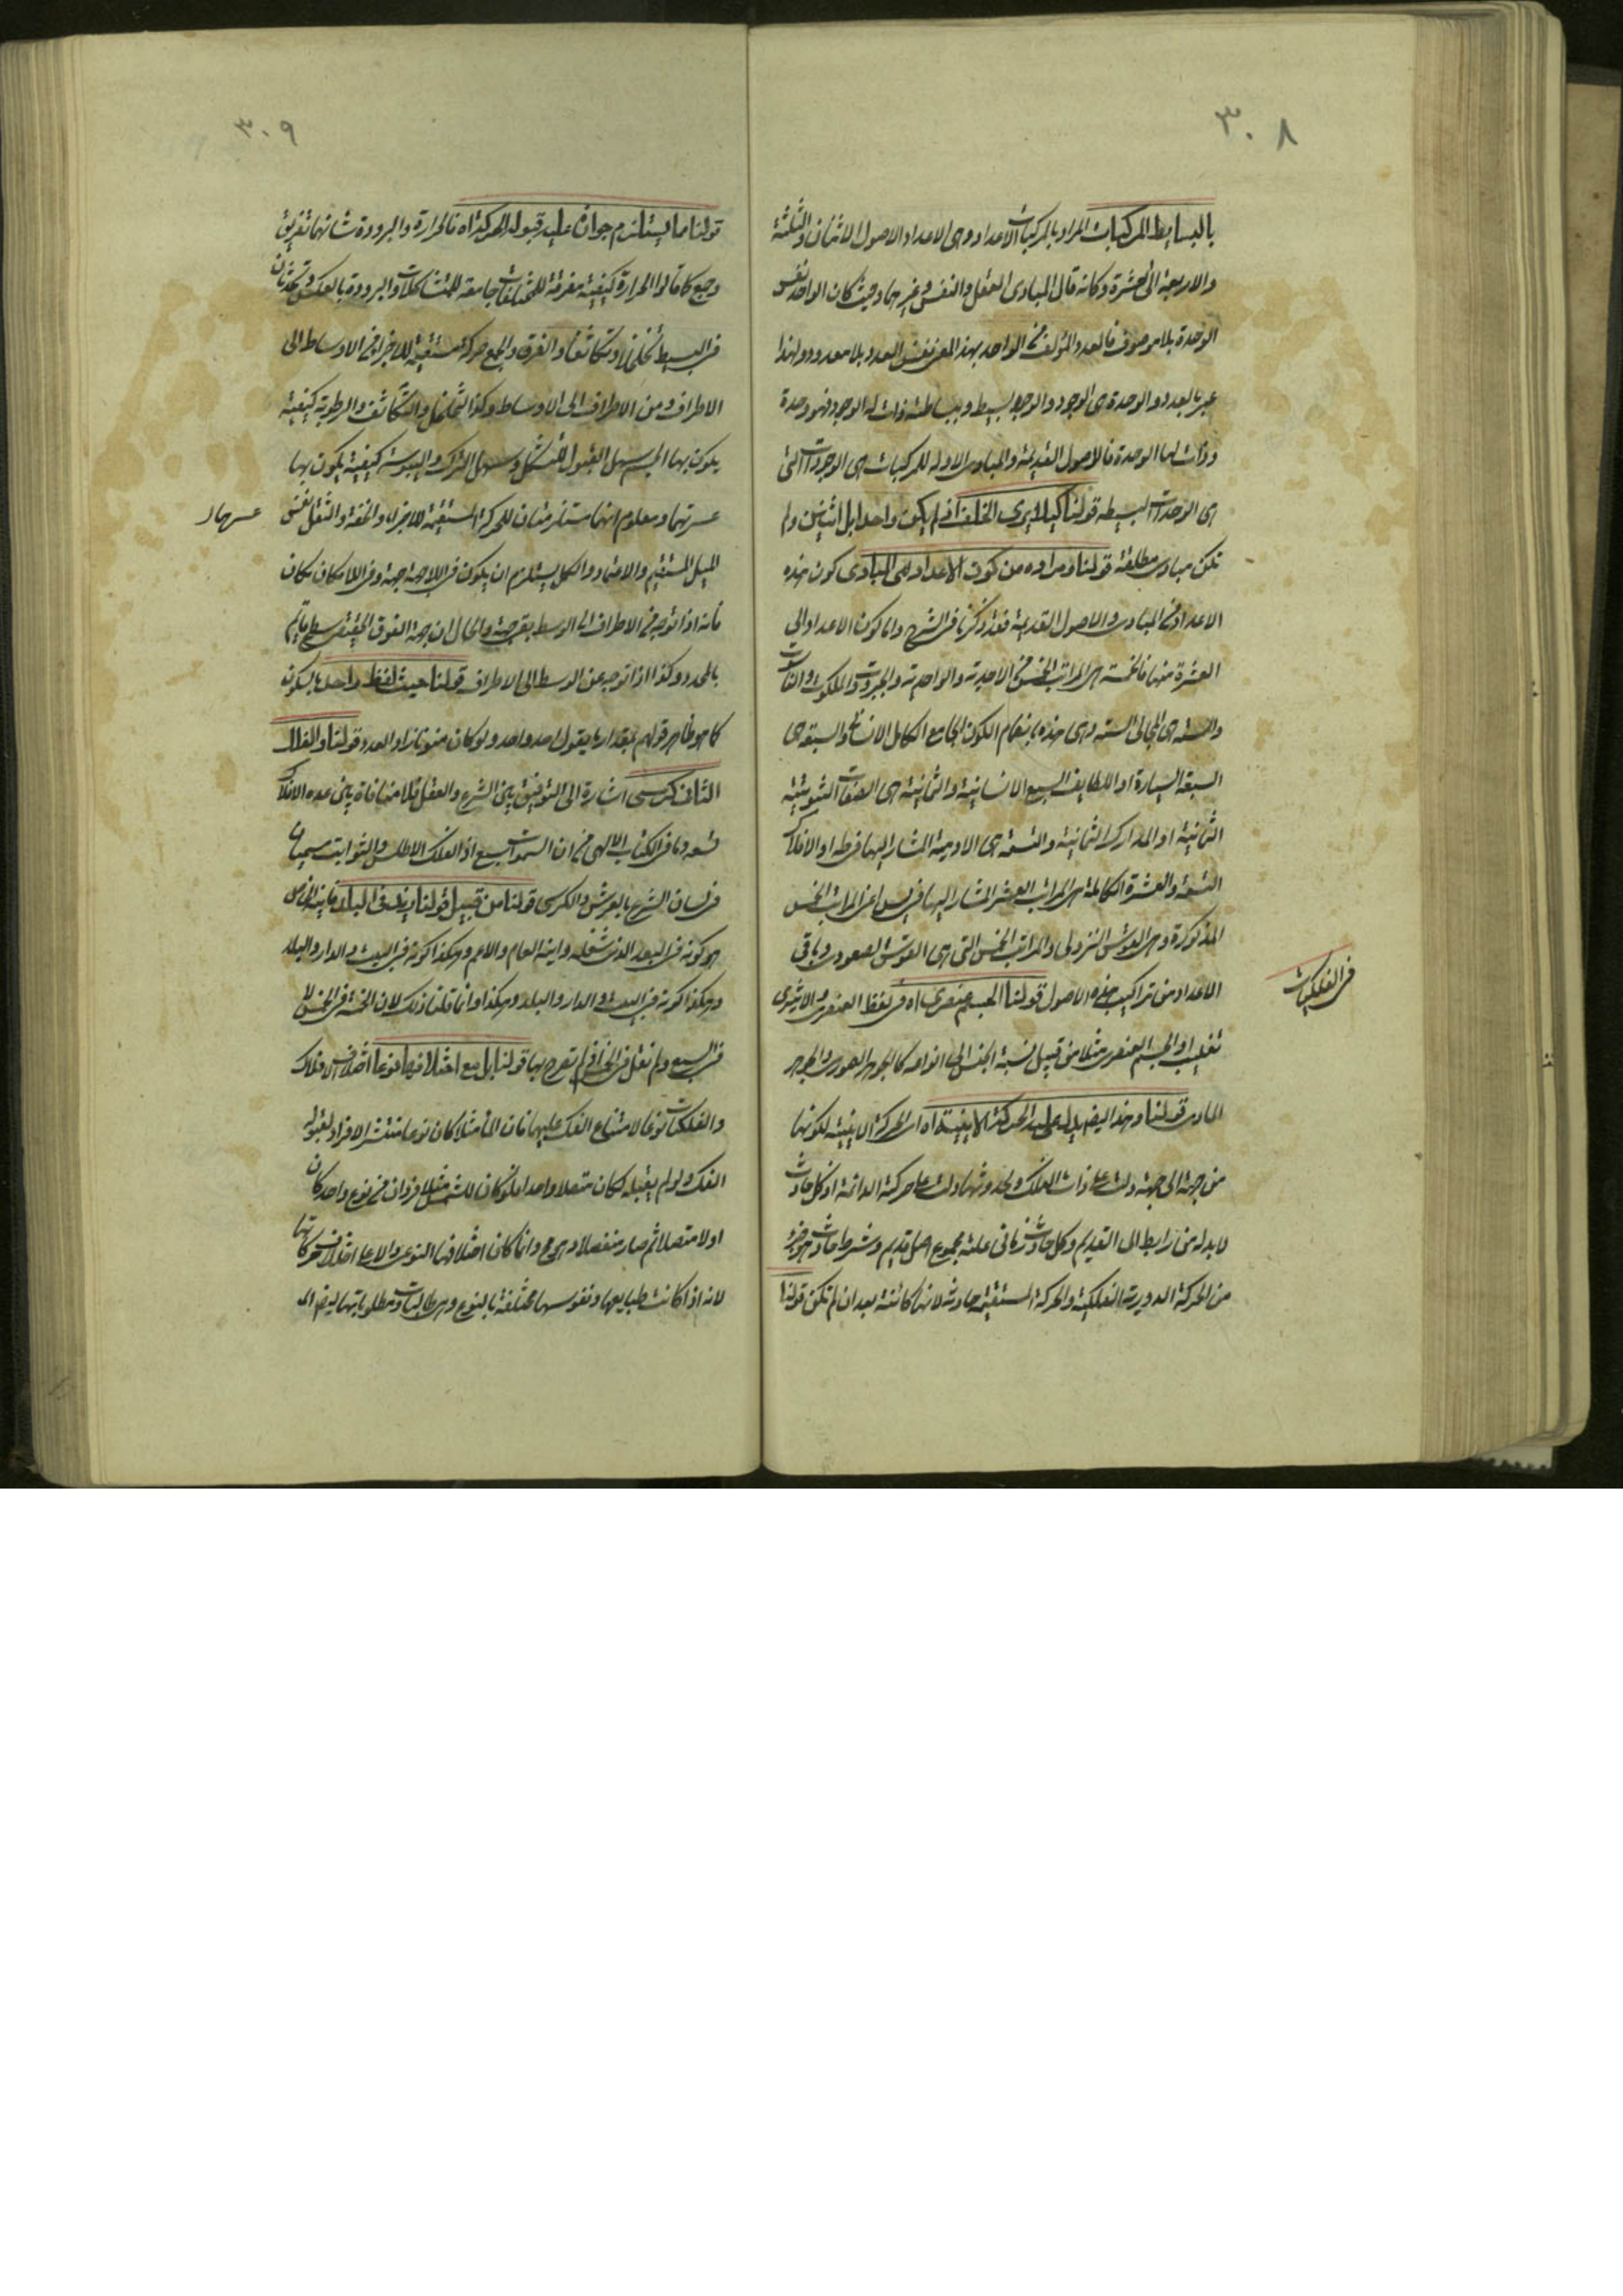 ٣٠٨
بالبسايط المركبات المراد بالمركبات الاعداد وهى الاعداد الاصول الاثنان والثلثة
والاربعة الى العشرة وكانه قال المبادى العقل والنفس وغيرهما وحيث كان الواحد نفس
الوحدة بلا موصوف فالعدد المؤلف من الواحد بهذا المعنى نفس العدد بلا معدود ولهذا
عبر بالعدد والوحدة هى الوجود والوجود بسيط وببساطته ذات له الوجود فهو وحدة
وذات لها الوحدة فالاصول القديمة والمبادى الاولة للمركبات هى الوجودات التى
هى الوحدات البسيطه قولنا كيلا يرى الخلف اذ لم يكن واحدا بل اثنين ولم
تكن مبادى مطلقة قولنا ومراده من كون الاعداد هى المبادى كون هذه
الاعداد من المبادى والاصول القديمة فقد ذكرنا فى الشرح واما كون الاعداد الى
العشرة منها فالخمسة هى المراتب الخمس من الاحدية والواحدية والجبروت والملكوت والناسوت
والستة هى المجالى الستة وهى هذه بانضمام الكون الجامع الكامل الانسانى والسبعة هى
السبعة السيارة او اللطايف السبع الانسانية والثمانية هى الصفات الثبوتية
الثمانية او المدارك الثمانية والتسعة هى الاودية المشار اليها فى طه او الافلاك
التسعة والعشرة الكاملة هى المراتب العشر المشار اليها فى يس اعنى المراتب الخمس
المذكورة وهى القوس النزولى والمراتب الخمس التى هى القوس الصعودى وباقى
الاعداد من تراكيب هذه الاصول قولنا الجسم عنصرى اه فى لفظ العنصرى والاثيرى
تغليب او الجسم العنصرى مثلا من قبيل نسبة الجنس الى انواعه كالجوهر الصورى والجوهر
المادى قولنا وهذا ايضا يدل عليه الحركة الاينية اه اى الحركة الاينية لكونها
من جهة الى جهة دلت على ذات الفلك ولحدوثها دلت على حركته الدائمة اذ كل حادث
لا بد له من رابط الى القديم وكل حادث زمانى علته مجموع اصل قديم وشرط حادث هو جزء
من الحركة الدورية الفلكية والحركة المستقيمة حادثة لانها كائنة بعد ان لم تكن قولنا
فى الفلكيات
٣٠٩
قولنا ما يستلزم جواز عليه قبوله الحركة اه فالحرارة والبرودة شانهما تفريق
وجمع كما قالوا الحرارة كيفية مفرقة للمختلفات جامعة للمتشاكلات والبرودة بالعكس وتحدثان
فى البسيط تخلخلا وتكاثفا والفرق والجمع حركة مستقيمة للاجزاء من الاوساط الى
الاطراف ومن الاطراف الى الاوساط وكذا التخلخل والتكاثف والرطوبة كيفية
يكون بها الجسم سهل القبول للتشكل وسهل الترك واليبوسة كيفية يكون بها
عسرتهما ومعلوم انهما مستلزمتان للحركة المستقيمة للاجزاء والخفة والثقل نفس
الميل المستقيم والاعتماد والكل يستلزم ان يكون فى اللاجهة جهة وفى اللامكان مكان
فانه اذا توجه من الاطراف الى الوسط بقى جهة والحال ان جهة الفوق الحقيقى سطح قايم
بالمحدد وكذا اذا توجه عن الوسط الى الاطراف قولنا حيث لفظ واحد بالسكون
كما هو ظاهر قولهم بمقدار ما يقول احد واحد ولو كان منونا زاد العدد قولنا والفلك
الثامن كرسى اشارة الى التوفيق بين الشرع والعقل فلا منافاة بين عدد الافلاك
تسعة وما فى الكتاب الالهى من ان السموات سبع اذ الفلك الاطلس والثوابت سميا
فى لسان الشرع بالعرش والكرسى قولنا من قبيل قولنا زيد فى البلد فاينه الخاص
هو كونه فى البعد الذى شغله واينه العام والاعم وهكذا كونه فى البيت والدار والبلد
وهكذا كونه فى البيت والدار والبلد وهكذا وانما قلنا ذلك لان الخمسة فى الخمس لا
فى السبع ولم نقل فى الخ اذ لم تعرج بها قولنا بل مع اختلافها نوعا اختلاف الافلاك
والفلكيات نوعا لامتناع الفك عليها فان الماء مثلا كان نوعا منتشر الافراد لقبوله
الفك ولو لم يقبله لكان متصلا واحدا فلو كان للشمس مثلا فردان من نوع واحد كان
اولا متصلا ثم صار منفصلا وهو مح وانما كان اختلافها النوعى والا على اختلاف حركاتها
لانه اذا كانت طبايعها ونفوسها مختلفة بالنوع وهى طالبات ومطلوباتها ايضا
عسرهما